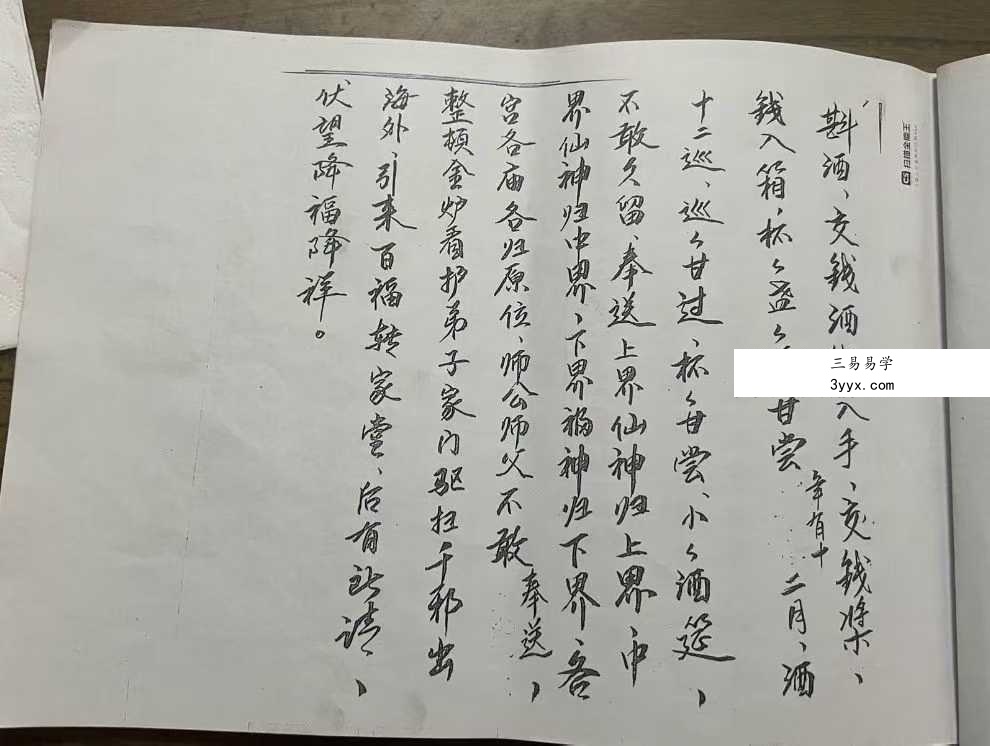 斟酒、交錢酒入手、交錢將
錢入箱，杯々盏々甘尝年有十二月、酒
十二巡、巡々甘过、杯々甘尝、小々酒筵、
不敢久留、奉送上界仙神归上界、中
界仙神归中界、下界福神归下界、各
宫各庙各归原位、师公师父不敢奉送、
整顿金炉看护弟子家门驱扫千邪出
海外、引来百福转家堂、后有所请、
伏望降福降祥。
三易易学
3yyx.com